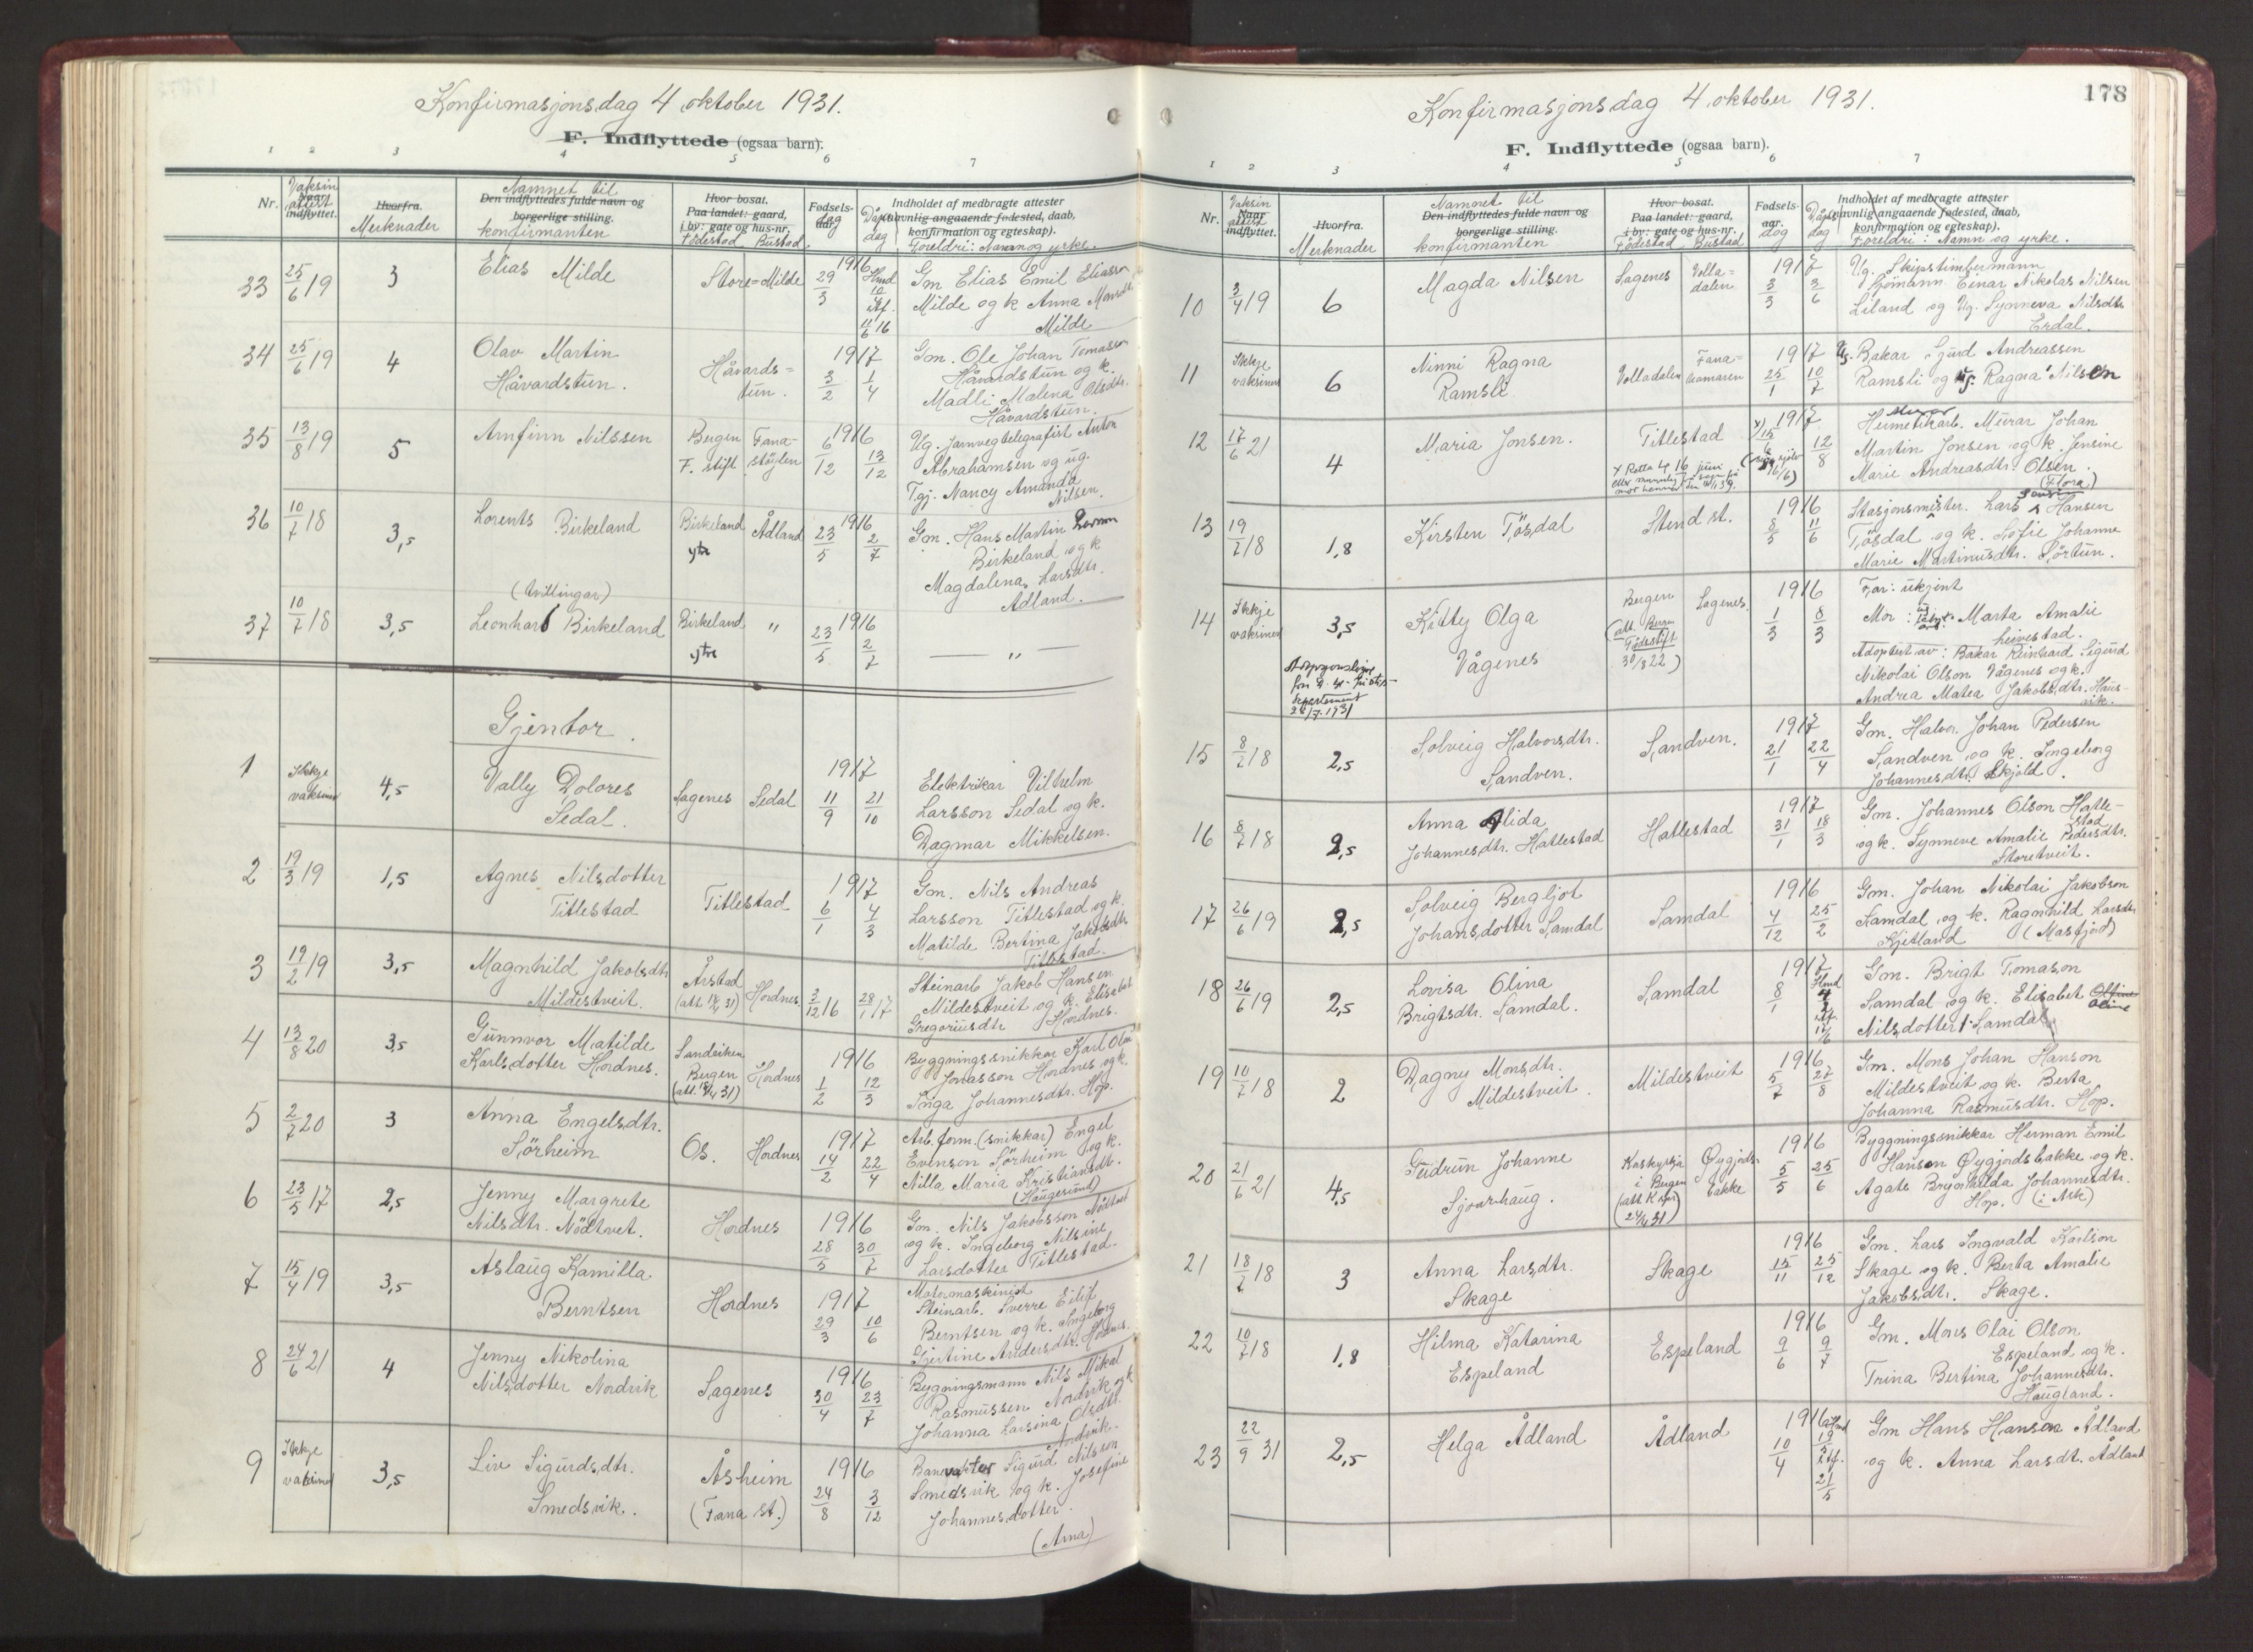 Konfirmasjonsdag 4 oktober 1931.
F. Indflyttede (ogsaa barn).
1 2 3 4 5 6 7
Nr.
Vaksin
attest
Naar
indflyttet.
Hvorfra.
Merknader
Namnet til
Den indflyttedes fulde navn og
borgerlige stilling.
konfirmanten
Hvor bosat.
Paa landet: gaard,
i by: gate og hus-nr.
Fødestad Bustad
Fødsels-
aar.
dag
Dåps
dag
Indholdet af medbragte attester
(navnlig angaaende fødested, daab,
konfirmation og egteskap).
Foreldri: Namn og yrke.
33 25/6 19 3 Elias Milde Store=Milde 1916 29/3 Hmd 10/4 stf. 11/6 16
Gm Elias Emil Eliasson
Milde og k Anna Monsdtr.
Milde
34 25/6 19 4 Olav Martin
Håvardstun.
Håvards=
tun.
1917 3/2 1/4
Gm. Ole Johan Tomasson
Håvardstun og k.
Madli Malena Olsdtr.
Håvardstun.
35 13/8 19 5 Arnfinn Nilssen
Bergen
F. stift
Fana-
støylen
1916 6/12 13/12
Ug. Jarnvegtelegrafist Anton
Abrahamsen og ug.
Tgj. Nancy Amanda
Nilsen.
36 10/7 18 3,5 Lorents Birkeland
Birkeland
ytre
Ådland
1916 23/5 2/7
Gm. Hans Martin Larsson
Birkeland og k
Magdalena Larsdtr.
Ådland.
(tvillingar)
37 10/7 18 3,5 Leonhard Birkeland
Birkeland
ytre
"
1916 23/5 2/7
— " —
Gjentor.
1 Ikkje
vaksinert
4,5 Vally Dolores
Sedal.
Sagenes Sedal
1917 11/9 21/10
Elektrikar Vilhelm
Larsson Sedal og k.
Dagmar Mikkelsen.
2 19/3 19 1,5 Agnes Nilsdotter
Titlestad
Titlestad
1917 6/1 4/3
Gm. Nils Andreas
Larsson Titlestad og k.
Matilde Bertina Jakobsdtr
Titlestad.
3 19/2 19 3,5 Magnhild Jakobsdtr
Mildestveit.
Årstad
(att. 18/4 31)
Hordnes
3/12 16 28/1 17
Steinarb. Jakob Hansen
Mildestveit og k. Elisabet
Gregoriusdtr Hordnes.
4 13/8 20 3,5 Gunnvor Matilde
Karlsdotter Hordnes.
Sandviken
Bergen
(att. 18/4 31)
Hordnes
1916 1/2 12/3
Byggningssnikkar Karl Olai
Jonasson Hordnes og k.
Inga Johannesdtr. Hop.
5 2/7 20 3 Anna Engelsdtr.
Sörheim
Os. Hordnes
1917 14/2 22/4
Arb.form. (snikkar) Engel
Evenson Sörheim og k.
Nilla Maria Kristiansdtr.
(Haugesund)
6 23/5 17 2,5 Jenny Margrete
Nilsdtr. Nödtvet.
Hordnes
1916 28/5 30/7
Gm. Nils Jakobsson Nödtvet
og k. Ingeborg Nilsine
Larsdotter Titlestad.
7 15/4 19 3,5 Aslaug Kamilla
Berntsen
Hordnes
1917 29/3 10/6
Motormaskinist
Steinarb. Sverre Eilif
Berntsen og k. Ingeborg
Gjertine Andersdtr. Hordnes.
8 24/6 21 4 Jenny Nikolina
Nilsdotter Nordvik
Sagenes
1916 30/4 23/7
Bygningsmann Nils Mikal
Rasmussen Nordvik og k
Johanna Larsina Olsdtr.
Nordvik.
9 Ikkje
vaksinert
3,5 Liv Sigurdsdtr.
Smedsvik.
Åsheim
(Fana st.)
1916 24/8 3/12
Banevakter Sigurd Nilsson
Smedsvik og k. Josefine
Johannesdotter.
(Arna)
178
Konfirmasjonsdag 4 oktober 1931.
F. Indflyttede (ogsaa barn).
1 2 3 4 5 6 7
Nr.
Vaksin
attest
Naar
indflyttet.
Hvorfra.
Merknader
Namnet til
Den indflyttedes fulde navn og
borgerlige stilling.
konfirmanten
Hvor bosat.
Paa landet: gaard,
i by: gate og hus-nr.
Födestad Bustad
Fødsels-
aar.
dag
Dåps
dag
Indholdet af medbragte attester
(navnlig angaaende fødested, daab,
konfirmation og egteskap).
Foreldri: Namn og yrke.
10 3/4 19 6 Magda Nilsen
Sagenes
Volla=
dalen
1917 3/3 3/6
Ug. Skipstimbermann
Sjömann Einar Nikolas Nilsen
Liland og Ug. Synneva Nilsdtr.
Erdal.
11 Ikkje
vaksinert
6 Ninni Ragna
Ramsli.
Volladalen
Fana=
hamaren
1917 25/1 10/7
Ug. Bakar Sjurd Andreassen
Ramsli og ug. Ragna Nilsen
12 17/6 21 4 Maria Jonsen.
Titlestad
x) 1917 15/6 12/8
x Retta 4/9 16 juni
Hermetikarb. Murar Johan
Martin Jonsen og k. Jensine
Marie Andreasdtr. Olsen.
(Flora)
13 19/7 18 1,8 Kirsten Tösdal
Stend st.
1916 8/5 11/6
Stasjonsmeister. Lars Hansen
Tösdal og k. Sofie Johanne
Marie Martinusdtr. Sörtun.
14 Ikkje
vaksinert
3,5 Kitty Olga
Vågenes
Bergen
Födestift
30/8 22)
Sagenes.
1916 1/3 8/3
departement
22/7.1931
Far: ukjent
Mor: Marta Amalie
Leivestad.
Adoptert av: Bakar Reinhard Sigurd
Nikolai Olson Vågenes og k.
Andrea Matea Jakobsdtr. Haus-
vik.
15 8/2 18 2,5 Solveig Halvorsdtr.
Sandven.
Sandven.
1917 21/1 22/4
Gm. Halvor Johan Pedersen
Sandven og k. Ingeborg
Johannesdtr. Skjold.
16 8/7 18 2,5 Anna Alida
Johannesdtr. Hatlestad
Hatlestad
1917 31/1 18/3
Gm. Johannes Olson Hatle-
stad
og k. Synneve Amalie Pedersdtr.
Storetveit.
17 26/6 19 2,5 Solveig Bergljot
Johansdotter Samdal
Samdal
1916 4/12 25/2
Gm. Johan Nikolai Jakobson
Samdal og k. Ragnhild Larsdtr
Kjetland (Masfjord)
18 26/6 19 2,5 Lovisa Olina
Brigtsdtr. Samdal.
Samdal
1917 8/1 Hmd stf. 17/6
Gm. Brigt Tomason
Samdal og k. Elisabet Oline
Nilsdotter Samdal
19 10/7 18 2 Dagny Monsdtr.
Mildestveit.
Mildestveit
1916 5/7 27/8
Gm. Mons Johan Hanson
Mildestveit og k. Berta
Johanna Rasmusdtr. Hop.
20 21/6 21 4,5 Gudrun Johanne
Sjovarhaug.
Korskyrkja
i Bergen
(24/4 31)
Øygjords-
bakke
1916 5/5 25/6
Byggningssnikkar Herman Emil
Hanson Øygjordsbakke og k.
Agate Brynhilda Johannesdtr.
Hop. (i Ask)
21 18/7 18 3 Anna Larsdtr.
Skage
Skage
1916 15/11 25/12
Gm. Lars Ingvald Karlson
Skage og k. Berta Amalie
Jakobsdtr. Skage.
22 10/7 18 1,8 Hilma Katarina
Espeland
Espeland
1916 9/6 9/7
Gm. Mons Olai Olson
Espeland og k.
Trina Bertina Johannesdtr.
Haugland.
23 22/9 31 2,5 Helga Ådland
Ådland
1916 10/4 Hmd 19/5 stf. 21/5
Gm Hans Hanson Ådland
og k. Anna Larsdt. Ådland